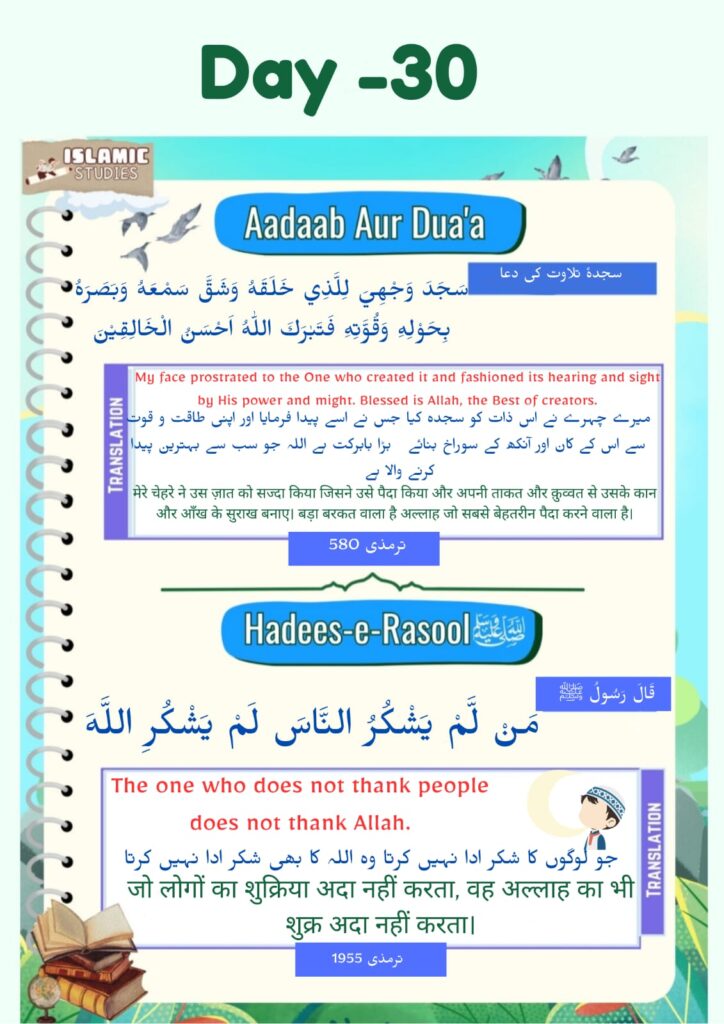 Day -30
ISLAMIC
STUDIES
Aadaab Aur Dua'a
سجدۂ تلاوت کی دعا
سَجَدَ وَجْهِيَ لِلَّذِي خَلَقَهُ وَشَقَّ سَمْعَهُ وَبَصَرَهُ
بِحَوْلِهِ وَقُوَّتِهِ فَتَبٰرَكَ اللّٰهُ اَحْسَنُ الْخَالِقِيْنَ
TRANSLATION
My face prostrated to the One who created it and fashioned its hearing and sight
by His power and might. Blessed is Allah, the Best of creators.
میرے چہرے نے اس ذات کو سجدہ کیا جس نے اسے پیدا فرمایا اور اپنی طاقت و قوت
سے اس کے کان اور آنکھ کے سوراخ بنائے بڑا بابرکت ہے اللہ جو سب سے بہترین پیدا
کرنے والا ہے
मेरे चेहरे ने उस ज़ात को सज्दा किया जिसने उसे पैदा किया और अपनी ताकत और क़ुव्वत से उसके कान
और आँख के सुराख बनाए। बड़ा बरकत वाला है अल्लाह जो सबसे बेहतरीन पैदा करने वाला है।
ترمذی 580
Hadees-e-Rasool ﷺ
قَالَ رَسُولُ ﷺ
مَنْ لَّمْ يَشْكُرُ النَّاسَ لَمْ يَشْكُرِ اللَّهَ
The one who does not thank people
does not thank Allah.
جو لوگوں کا شکر ادا نہیں کرتا وہ اللہ کا بھی شکر ادا نہیں کرتا
जो लोगों का शुक्रिया अदा नहीं करता, वह अल्लाह का भी
शुक्र अदा नहीं करता।
TRANSLATION
ترمذی 1955